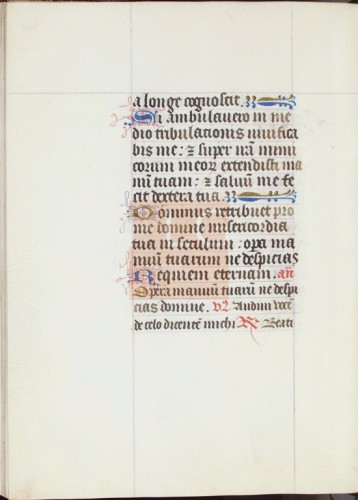 a longe cognoscit.
Si ambulavero in me
dio tribulationis vivifica
bis me: ⁊ super irā inimi
corum meoꝝ extendisti ma
nū tuam: ⁊ salvū me fe
cit dextera tua.
Dominus retribuet pro
me domine misericordia
tua in seculum: opa ma
nuum tuarum ne despicias
Requiem eternam. an̄
Opera manuum tuarū ne despi
cias domine. V᷒ Audivi vocē
de celo dicentē michi R᷒ Beati